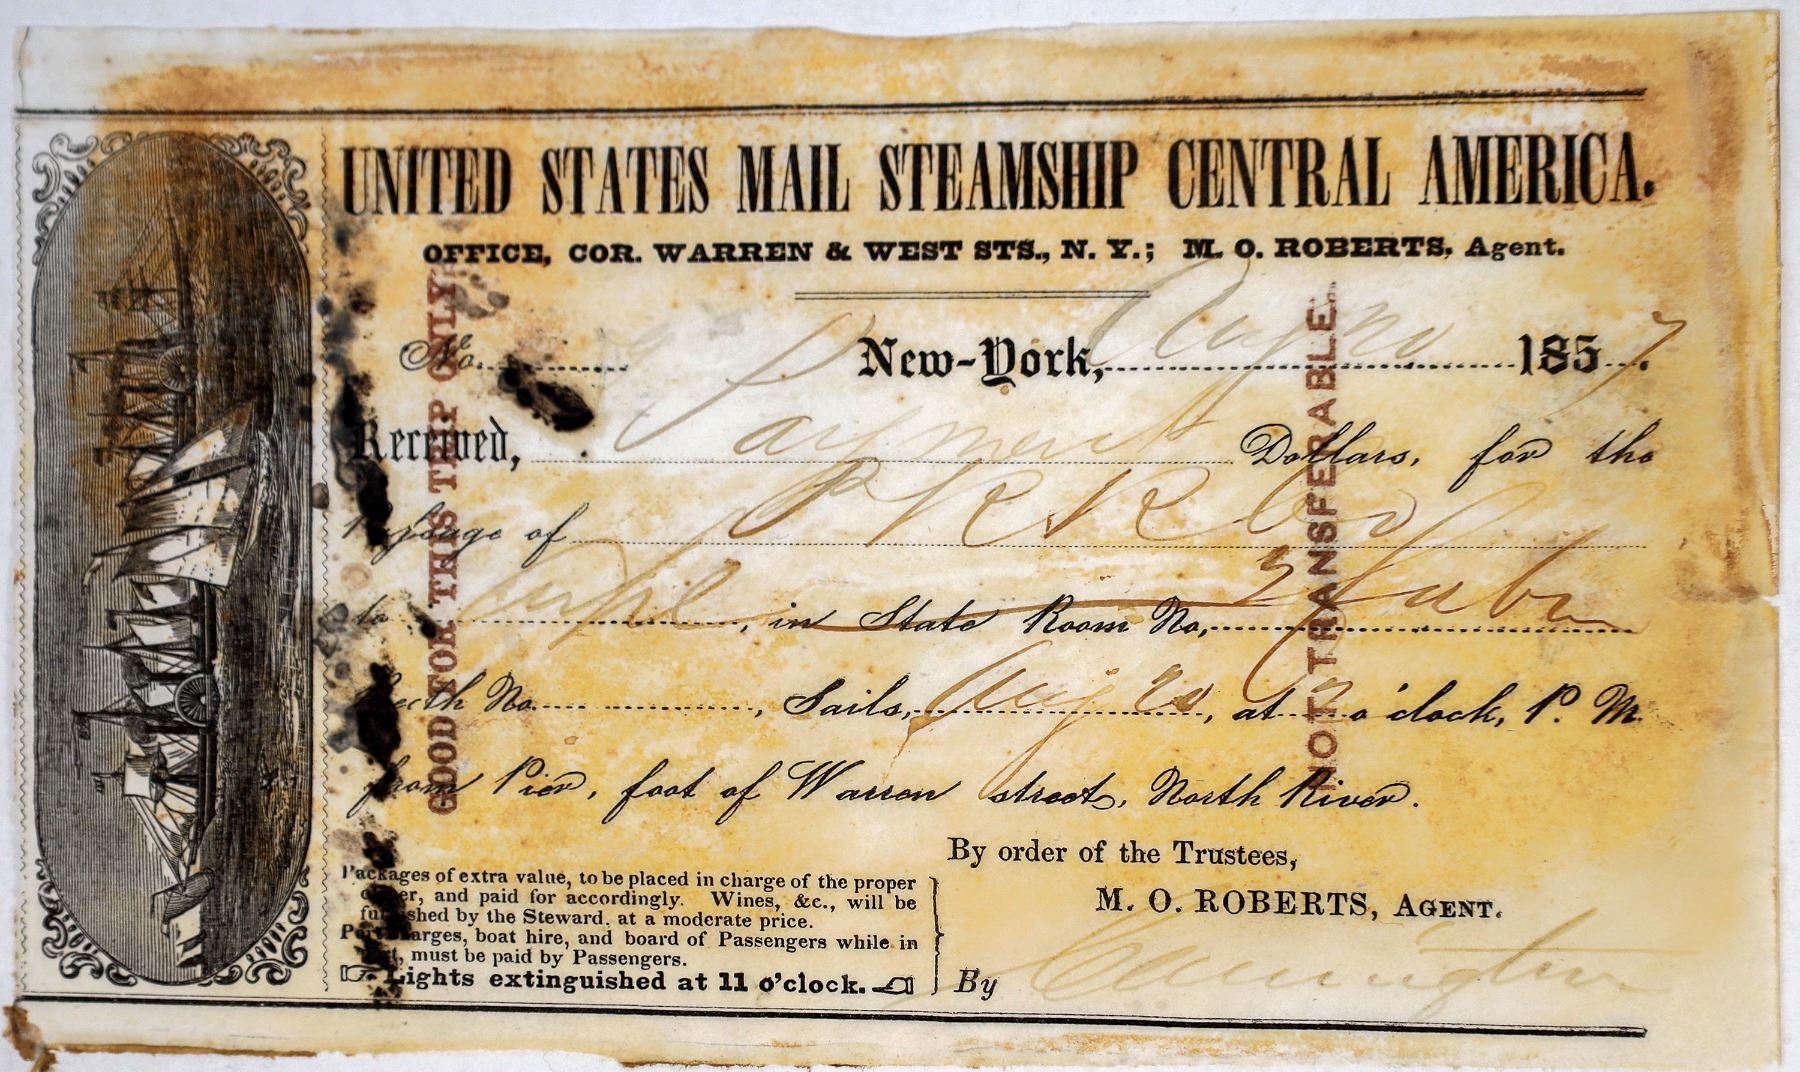 UNITED STATES MAIL STEAMSHIP CENTRAL AMERICA.
OFFICE, COR. WARREN & WEST STS., N. Y.; M. O. ROBERTS, Agent.
No. New-York, Aug 20 1857.
Received, Payment Dollars, for the
Passage of P R R Co
to in State Room No, 2 Cabin
Berth No. , Sails, Aug 20, at 2 o'clock, P. M.
from Pier, foot of Warren street, North River.
GOOD FOR THIS TRIP ONLY
NOT TRANSFERABLE.
Packages of extra value, to be placed in charge of the proper
officer, and paid for accordingly. Wines, &c., will be
furnished by the Steward, at a moderate price.
Port charges, boat hire, and board of Passengers while in
port, must be paid by Passengers.
Lights extinguished at 11 o'clock.
By order of the Trustees,
M. O. ROBERTS, AGENT.
By